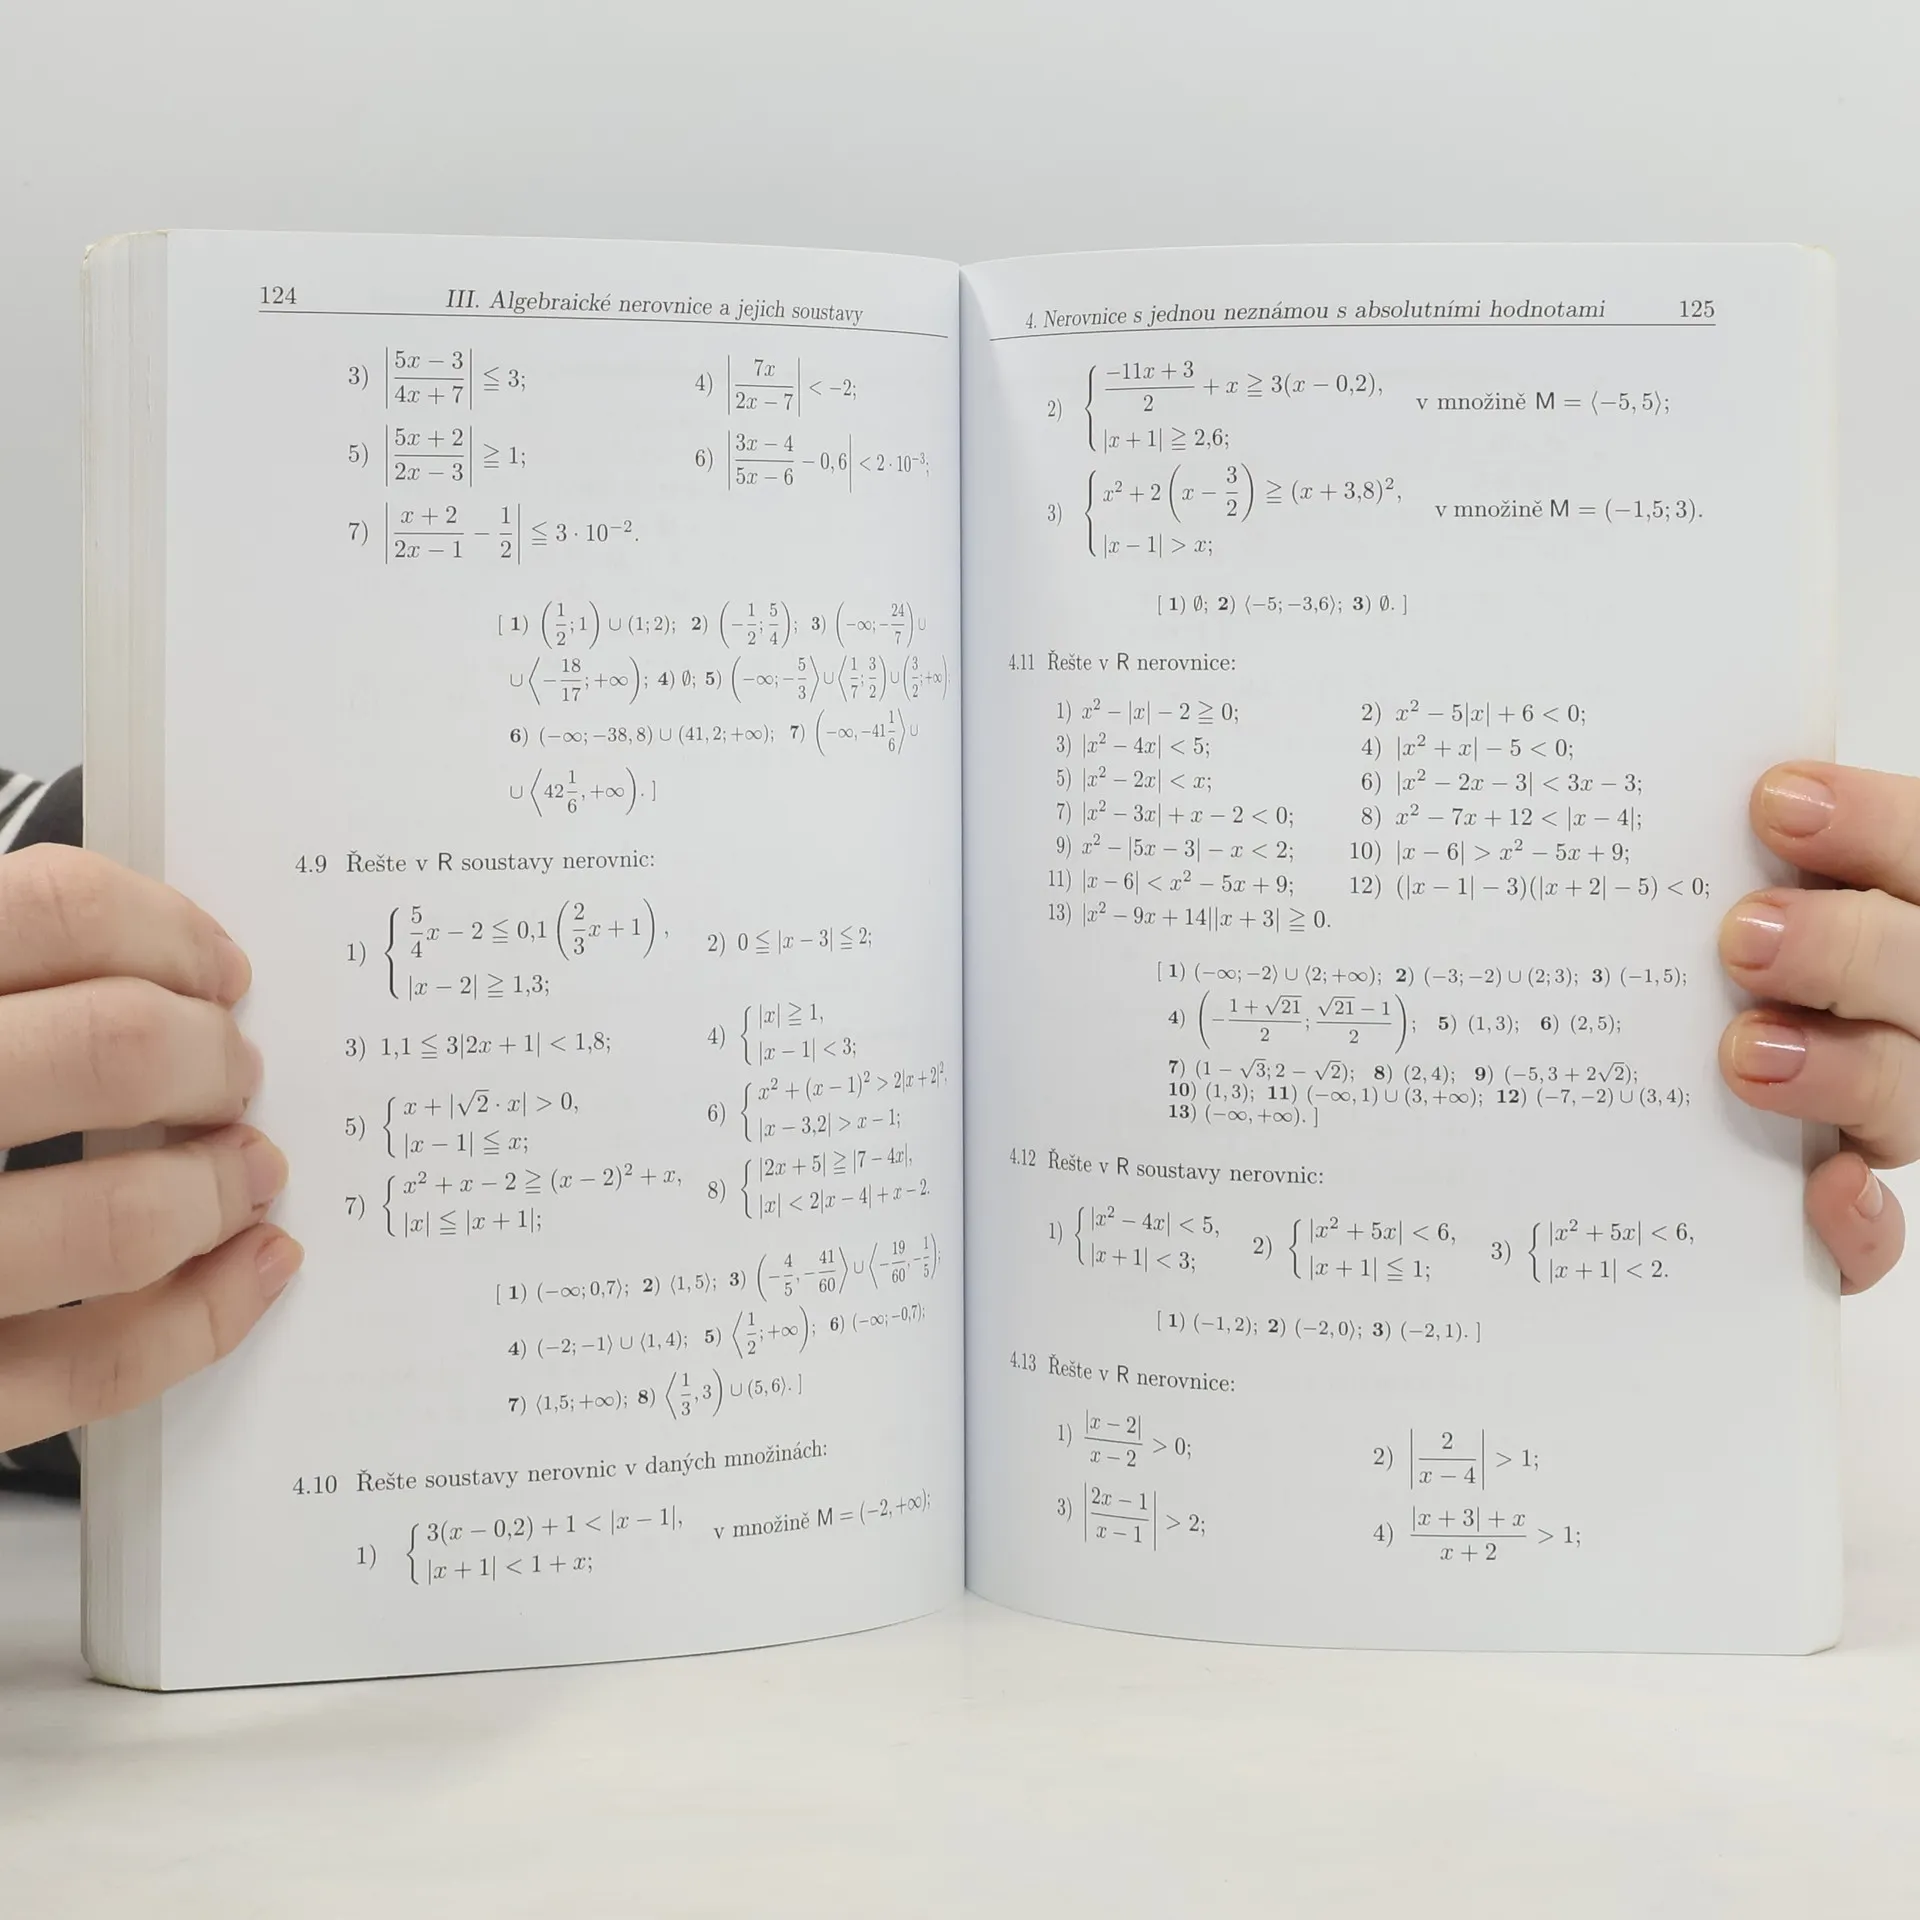 124 III. Algebraické nerovnice a jejich soustavy
3) |(5x − 3)/(4x + 7)| ≦ 3; 4) |7x/(2x − 7)| < −2;
5) |(5x + 2)/(2x − 3)| ≧ 1; 6) |(3x − 4)/(5x − 6) − 0,6| < 2 · 10⁻³;
7) |(x + 2)/(2x − 1) − 1/2| ≦ 3 · 10⁻².
[ 1) (1/2; 1) ∪ (1; 2); 2) (−1/2; 5/4); 3) (−∞; −24/7) ∪
∪ ⟨−18/17; +∞); 4) ∅; 5) (−∞; −5/3⟩ ∪ ⟨1/7; 3/2) ∪ (3/2; +∞);
6) (−∞; −38, 8) ∪ (41, 2; +∞); 7) (−∞, −41 1/6⟩ ∪
∪ ⟨42 1/6, +∞). ]
4.9 Řešte v R soustavy nerovnic:
1) { 5/4 x − 2 ≦ 0,1 (2/3 x + 1), 2) 0 ≦ |x − 3| ≦ 2;
|x − 2| ≧ 1,3;
3) 1,1 ≦ 3|2x + 1| < 1,8; 4) { |x| ≧ 1,
|x − 1| < 3;
5) { x + |√2 · x| > 0, 6) { x² + (x − 1)² > 2|x + 2|²,
|x − 1| ≦ x; |x − 3,2| > x − 1;
7) { x² + x − 2 ≧ (x − 2)² + x, 8) { |2x + 5| ≧ |7 − 4x|,
|x| ≦ |x + 1|; |x| < 2|x − 4| + x − 2.
[ 1) (−∞; 0,7⟩; 2) ⟨1, 5⟩; 3) (−4/5, −41/60⟩ ∪ ⟨−19/60, −1/5);
4) (−2; −1⟩ ∪ ⟨1, 4); 5) ⟨1/2; +∞); 6) (−∞; −0,7);
7) ⟨1,5; +∞); 8) ⟨1/3, 3) ∪ (5, 6⟩. ]
4.10 Řešte soustavy nerovnic v daných množinách:
1) { 3(x − 0,2) + 1 < |x − 1|, v množině M = (−2, +∞);
|x + 1| < 1 + x;
4. Nerovnice s jednou neznámou s absolutními hodnotami 125
2) { (−11x + 3)/2 + x ≧ 3(x − 0,2), v množině M = ⟨−5, 5⟩;
|x + 1| ≧ 2,6;
3) { x² + 2 (x − 3/2) ≧ (x + 3,8)², v množině M = (−1,5; 3).
|x − 1| > x;
[ 1) ∅; 2) ⟨−5; −3,6⟩; 3) ∅. ]
4.11 Řešte v R nerovnice:
1) x² − |x| − 2 ≧ 0; 2) x² − 5|x| + 6 < 0;
3) |x² − 4x| < 5; 4) |x² + x| − 5 < 0;
5) |x² − 2x| < x; 6) |x² − 2x − 3| < 3x − 3;
7) |x² − 3x| + x − 2 < 0; 8) x² − 7x + 12 < |x − 4|;
9) x² − |5x − 3| − x < 2; 10) |x − 6| > x² − 5x + 9;
11) |x − 6| < x² − 5x + 9; 12) (|x − 1| − 3)(|x + 2| − 5) < 0;
13) |x² − 9x + 14||x + 3| ≧ 0.
[ 1) (−∞; −2⟩ ∪ ⟨2; +∞); 2) (−3; −2) ∪ (2; 3); 3) (−1, 5);
4) (−(1 + √21)/2; (√21 − 1)/2); 5) (1, 3); 6) (2, 5);
7) (1 − √3; 2 − √2); 8) (2, 4); 9) (−5, 3 + 2√2);
10) (1, 3); 11) (−∞, 1) ∪ (3, +∞); 12) (−7, −2) ∪ (3, 4);
13) (−∞, +∞). ]
4.12 Řešte v R soustavy nerovnic:
1) { |x² − 4x| < 5, 2) { |x² + 5x| < 6, 3) { |x² + 5x| < 6,
|x + 1| < 3; |x + 1| ≦ 1; |x + 1| < 2.
[ 1) (−1, 2); 2) (−2, 0⟩; 3) (−2, 1). ]
4.13 Řešte v R nerovnice:
1) |x − 2|/(x − 2) > 0; 2) |2/(x − 4)| > 1;
3) |(2x − 1)/(x − 1)| > 2; 4) (|x + 3| + x)/(x + 2) > 1;